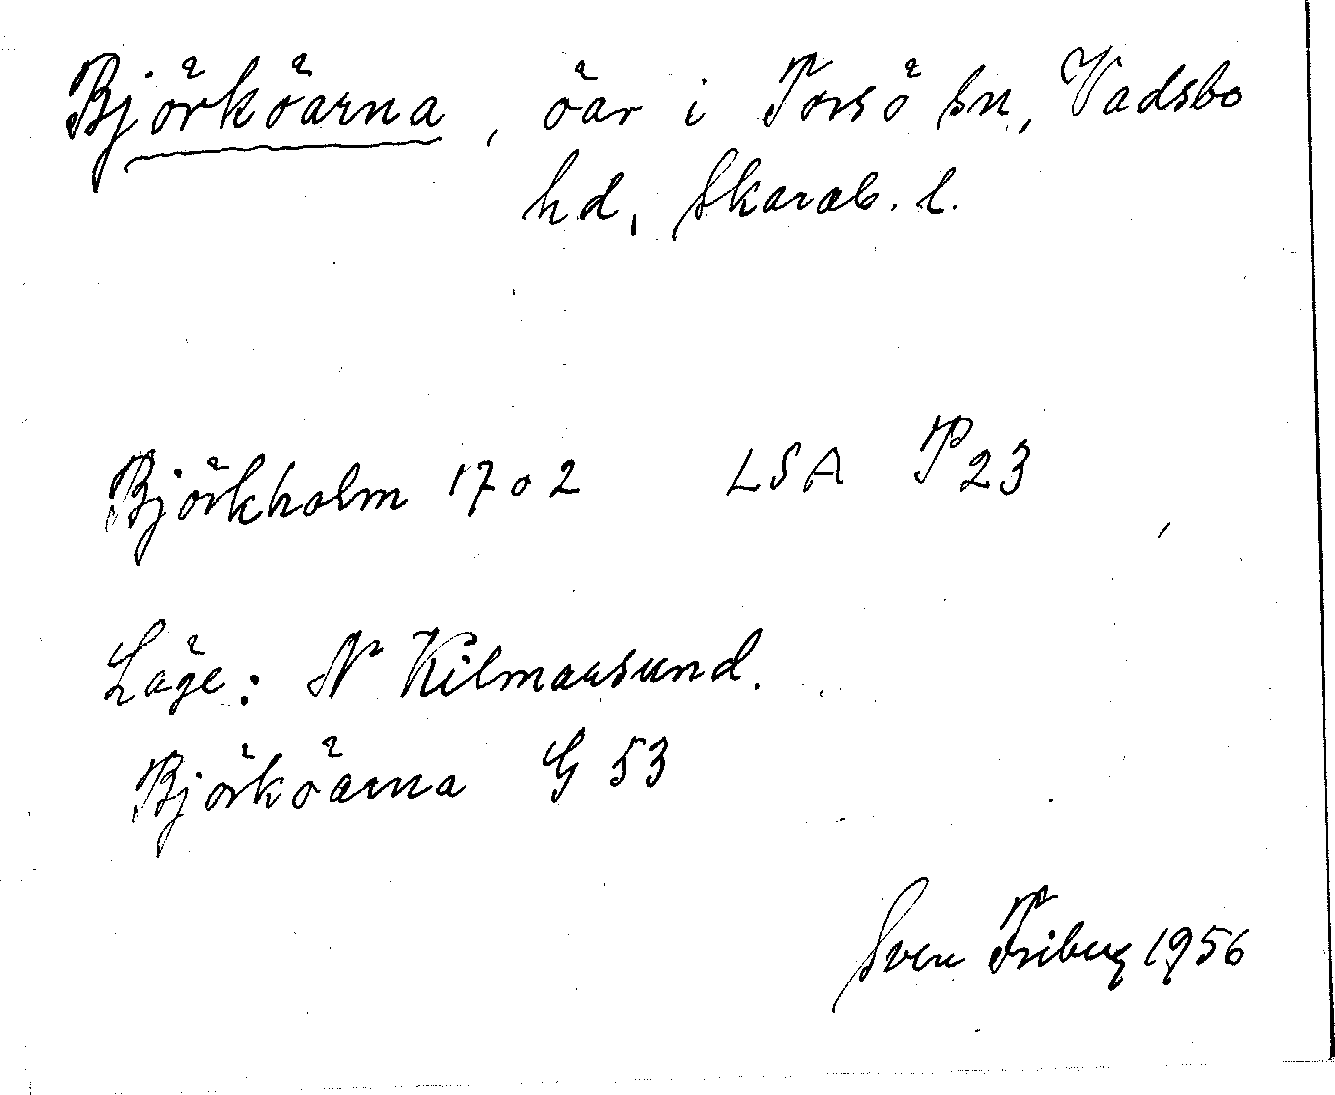 Björköarna, öar i Torsö sn, Vadsbo
hd, Skarab. l.
Björkholm 1702 LSA P23
Läge: N Kilmarsund.
Björköarna G 53
Sven Friberg 1956